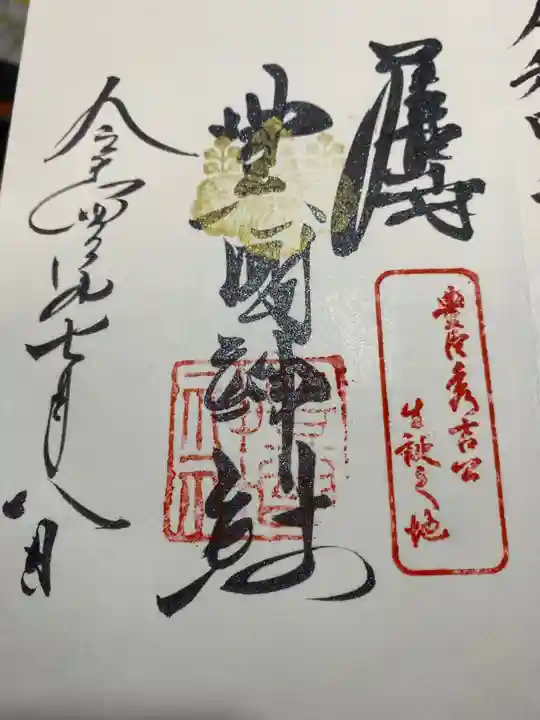 豊臣秀吉公
生誕之地
豊國神社
令和四年七月八日